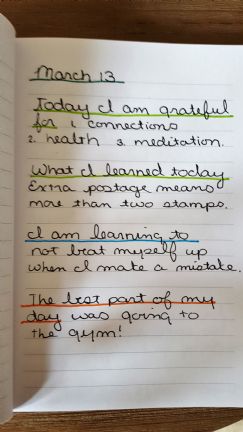 March 13
Today I am grateful
for 1. connections
2. health 3. meditation.
What I learned today
Extra postage means
more than two stamps.
I am learning to
not beat myself up
when I make a mistake.
The best part of my
day was going to
the gym!